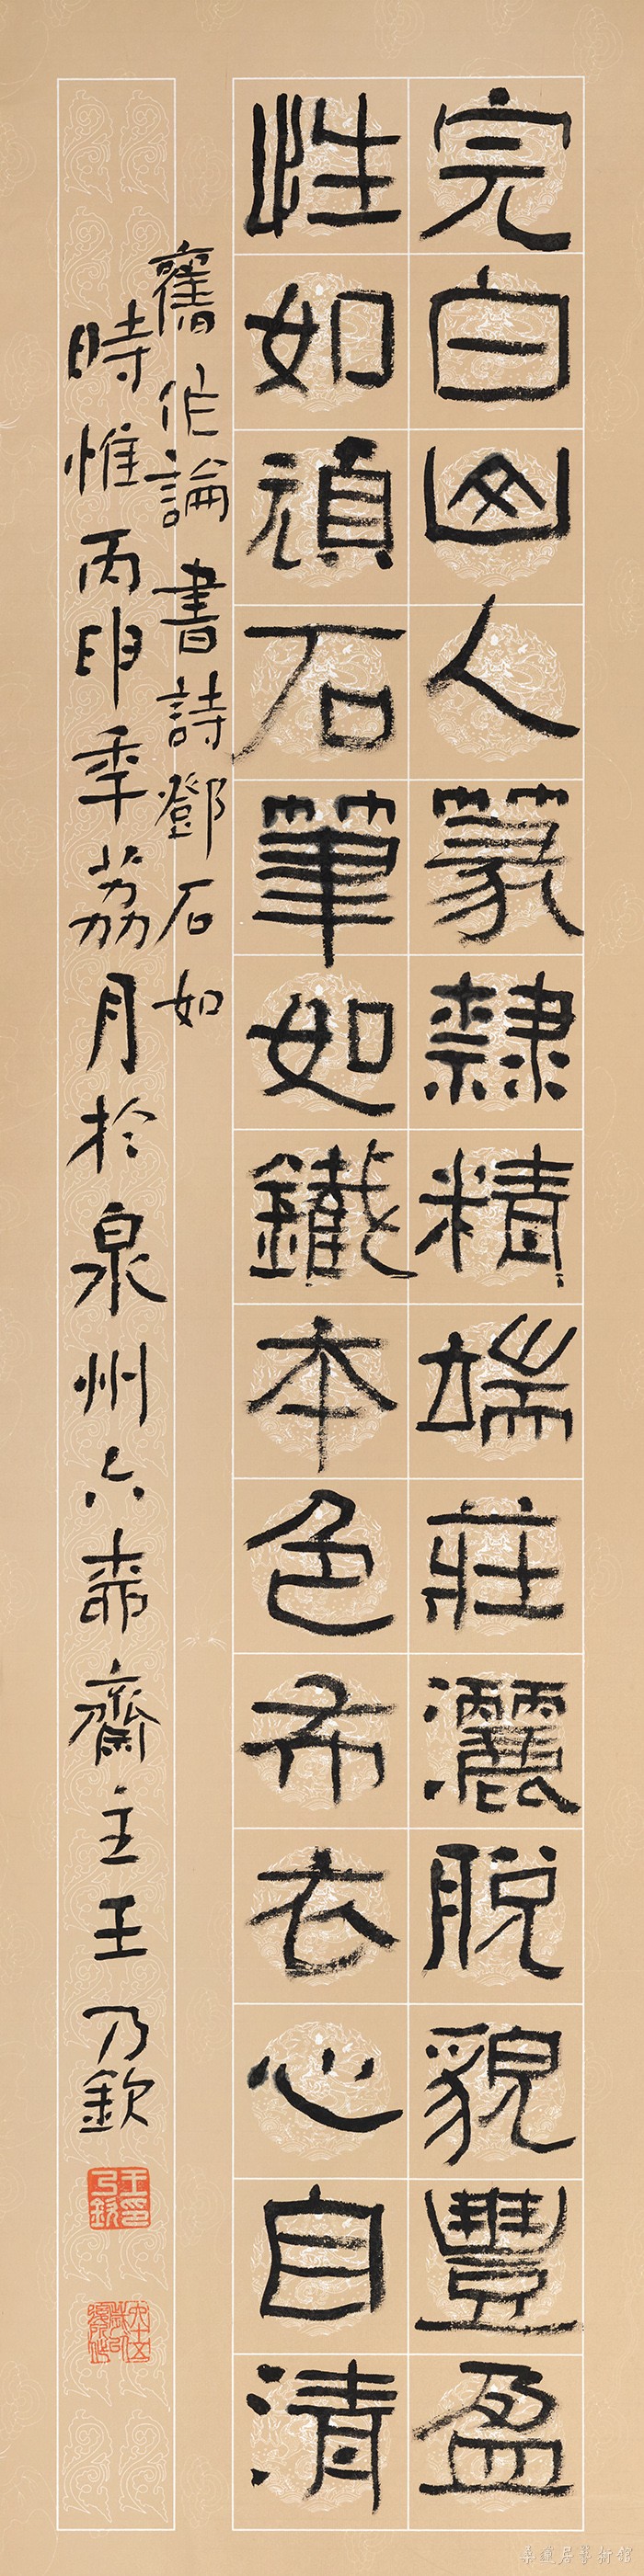 完白山人篆隸精端莊灑脫貌豐盈
性如頑石筆如鐵本色布衣心自清
舊作論書詩鄧石如
時惟丙申秊荔月於泉州六齋主王乃欽
王乃欽印
居藝術館